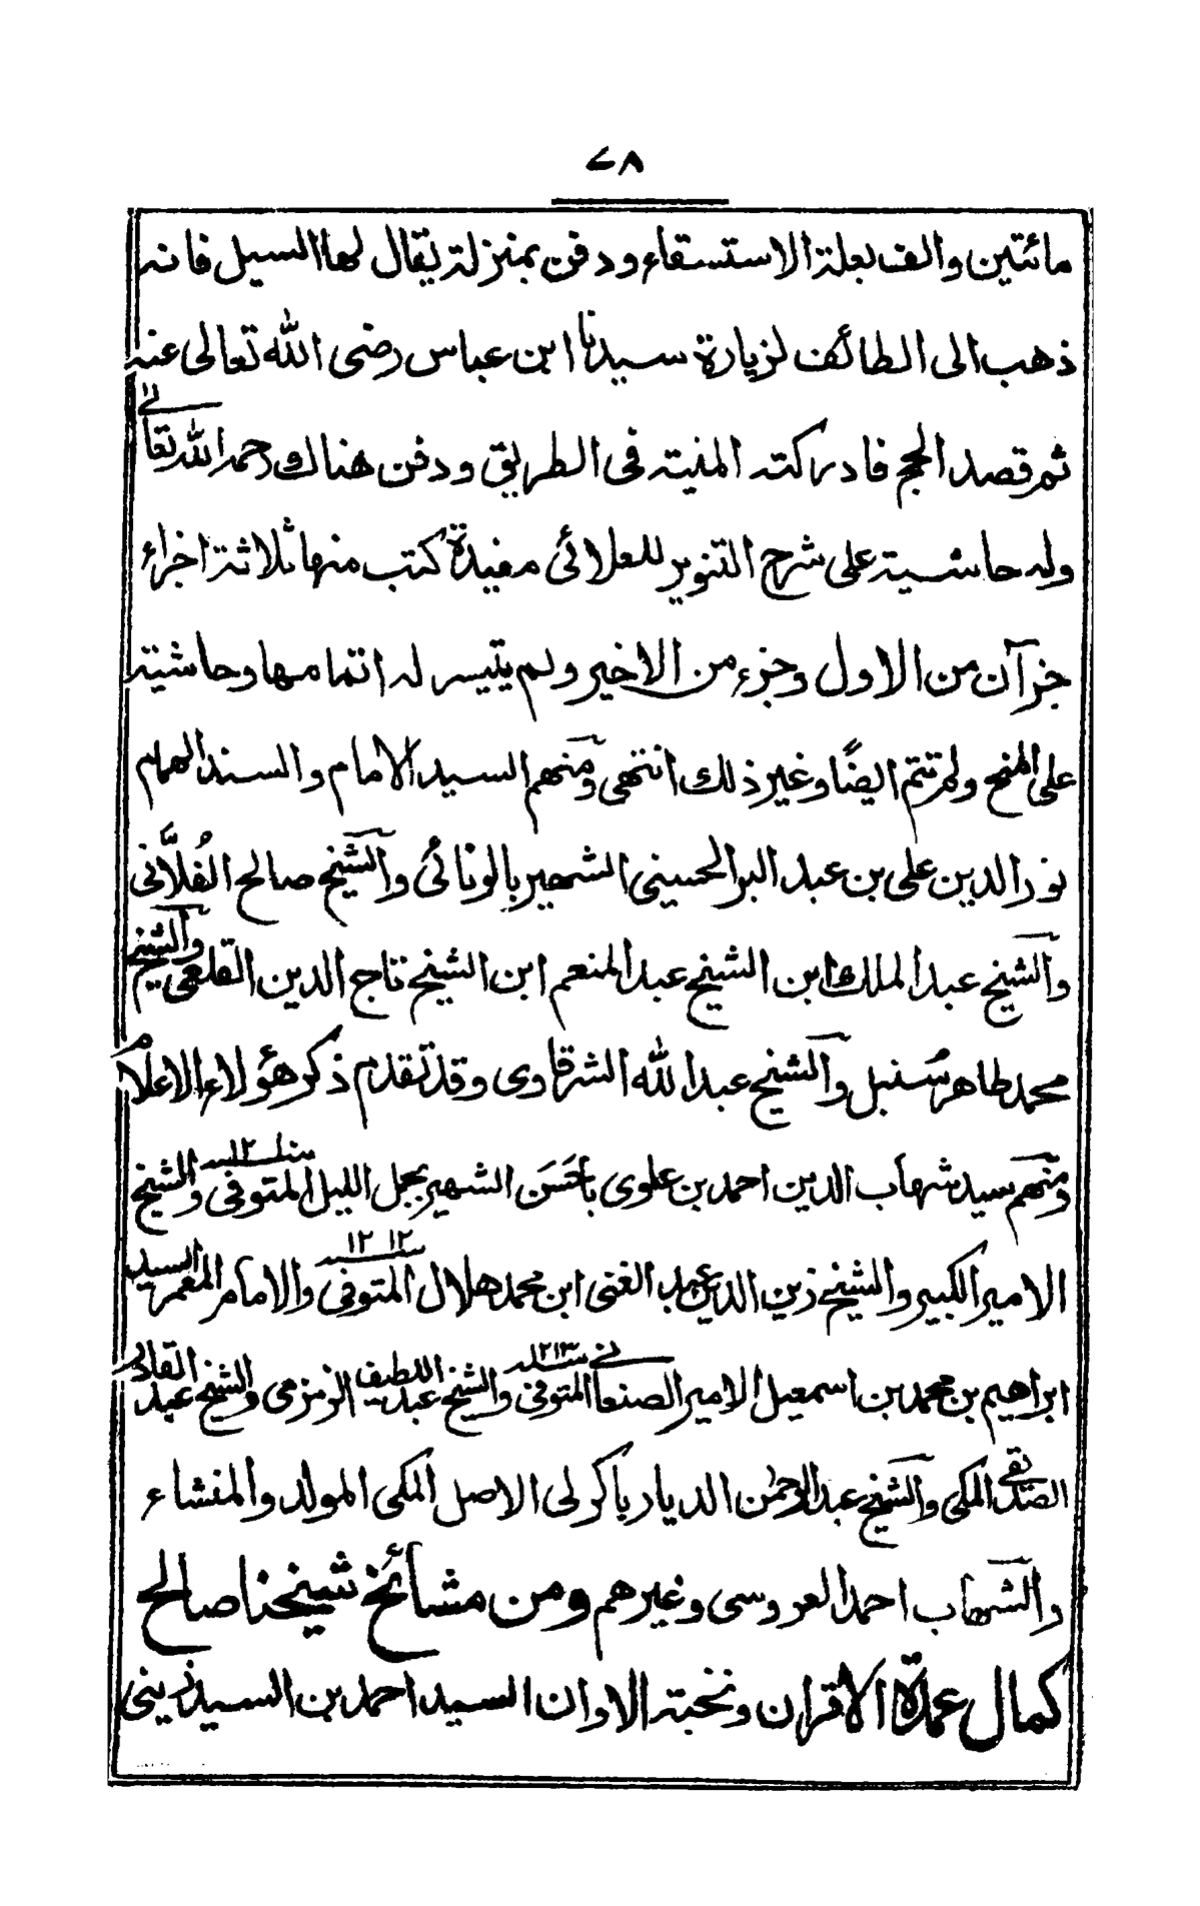 ٧٨
مائتين والف لعلة الاستسقاء ودفن بمنزلة يقال لها السيل فانه
ذهب الى الطائف لزيارة سيدنا ابن عباس رضى الله تعالى عنه
ثم قصد الحج فادركته المنية فى الطريق ودفن هناك رحمه الله تعالى
وله حاشية على شرح التنوير للعلائى مفيدة كتب منها ثلاثة اجزاء
جزآن من الاول وجزء من الاخير ولم يتيسر له اتمامها وحاشية
على المنح ولم تتم ايضًا وغير ذلك انتهى ومنهم السيد الامام والسند الهمام
نور الدين على بن عبد البر الحسينى الشهير بالونائى والشيخ صالح الفُلَّانى
والشيخ عبد الملك ابن الشيخ عبد المنعم ابن الشيخ تاج الدين القلعى والشيخ
محمد طاهر سُنبل والشيخ عبد الله الشرقاوى وقد تقدم ذكر هؤلاء الاعلام
ومنهم سيد شهاب الدين احمد بن علوى باحَسَن الشهير بجمل الليل المتوفى والشيخ
الامير الكبير والشيخ زين الدين عبد الغنى ابن محمد هلال المتوفى ١٢١٢ والامام المعمر السيد
ابراهيم بن محمد بن اسمعيل الامير الصنعانى المتوفى سنة ١٢١٣ والشيخ عبد اللطيف الزمزمى والشيخ عبد القادر
الصديقى المكى والشيخ عبد الرحمٰن الديار باكرلى الاصل المكى المولد والمنشاء
والشهاب احمد العروسى وغيرهم ومن مشائخ شيخنا صالح
كمال عمدة الاقران ونخبة الاوان السيد احمد بن السيد زينى